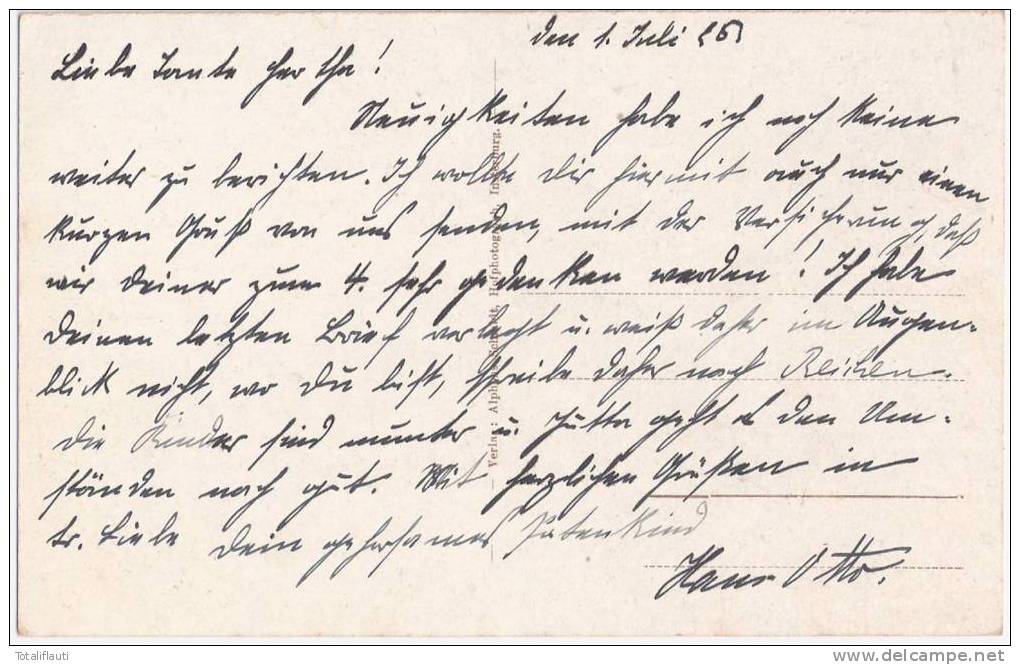 den 1. Juli 26
Liebe Tante Hertha!
Neuigkeiten habe ich noch keine
weiter zu berichten. Ich wollte Dir hiermit auch nur einen
kurzen Gruß von uns senden, mit der Versicherung, daß
wir Deiner zum 4. sehr gedenken werden! Ich habe
Deinen letzten Brief verlegt u. weiß daher im Augen-
blick nicht, wo Du bist, schreibe daher nach
Die Kinder sind munter u. Jutta geht es den Um-
ständen nach gut. Mit herzlichen Grüßen in
tr. Liebe Dein gehorsames Patenkind
Hans Otto.
Verlag: Hofphotograph,
Totaliflauti
www.delcampe.net